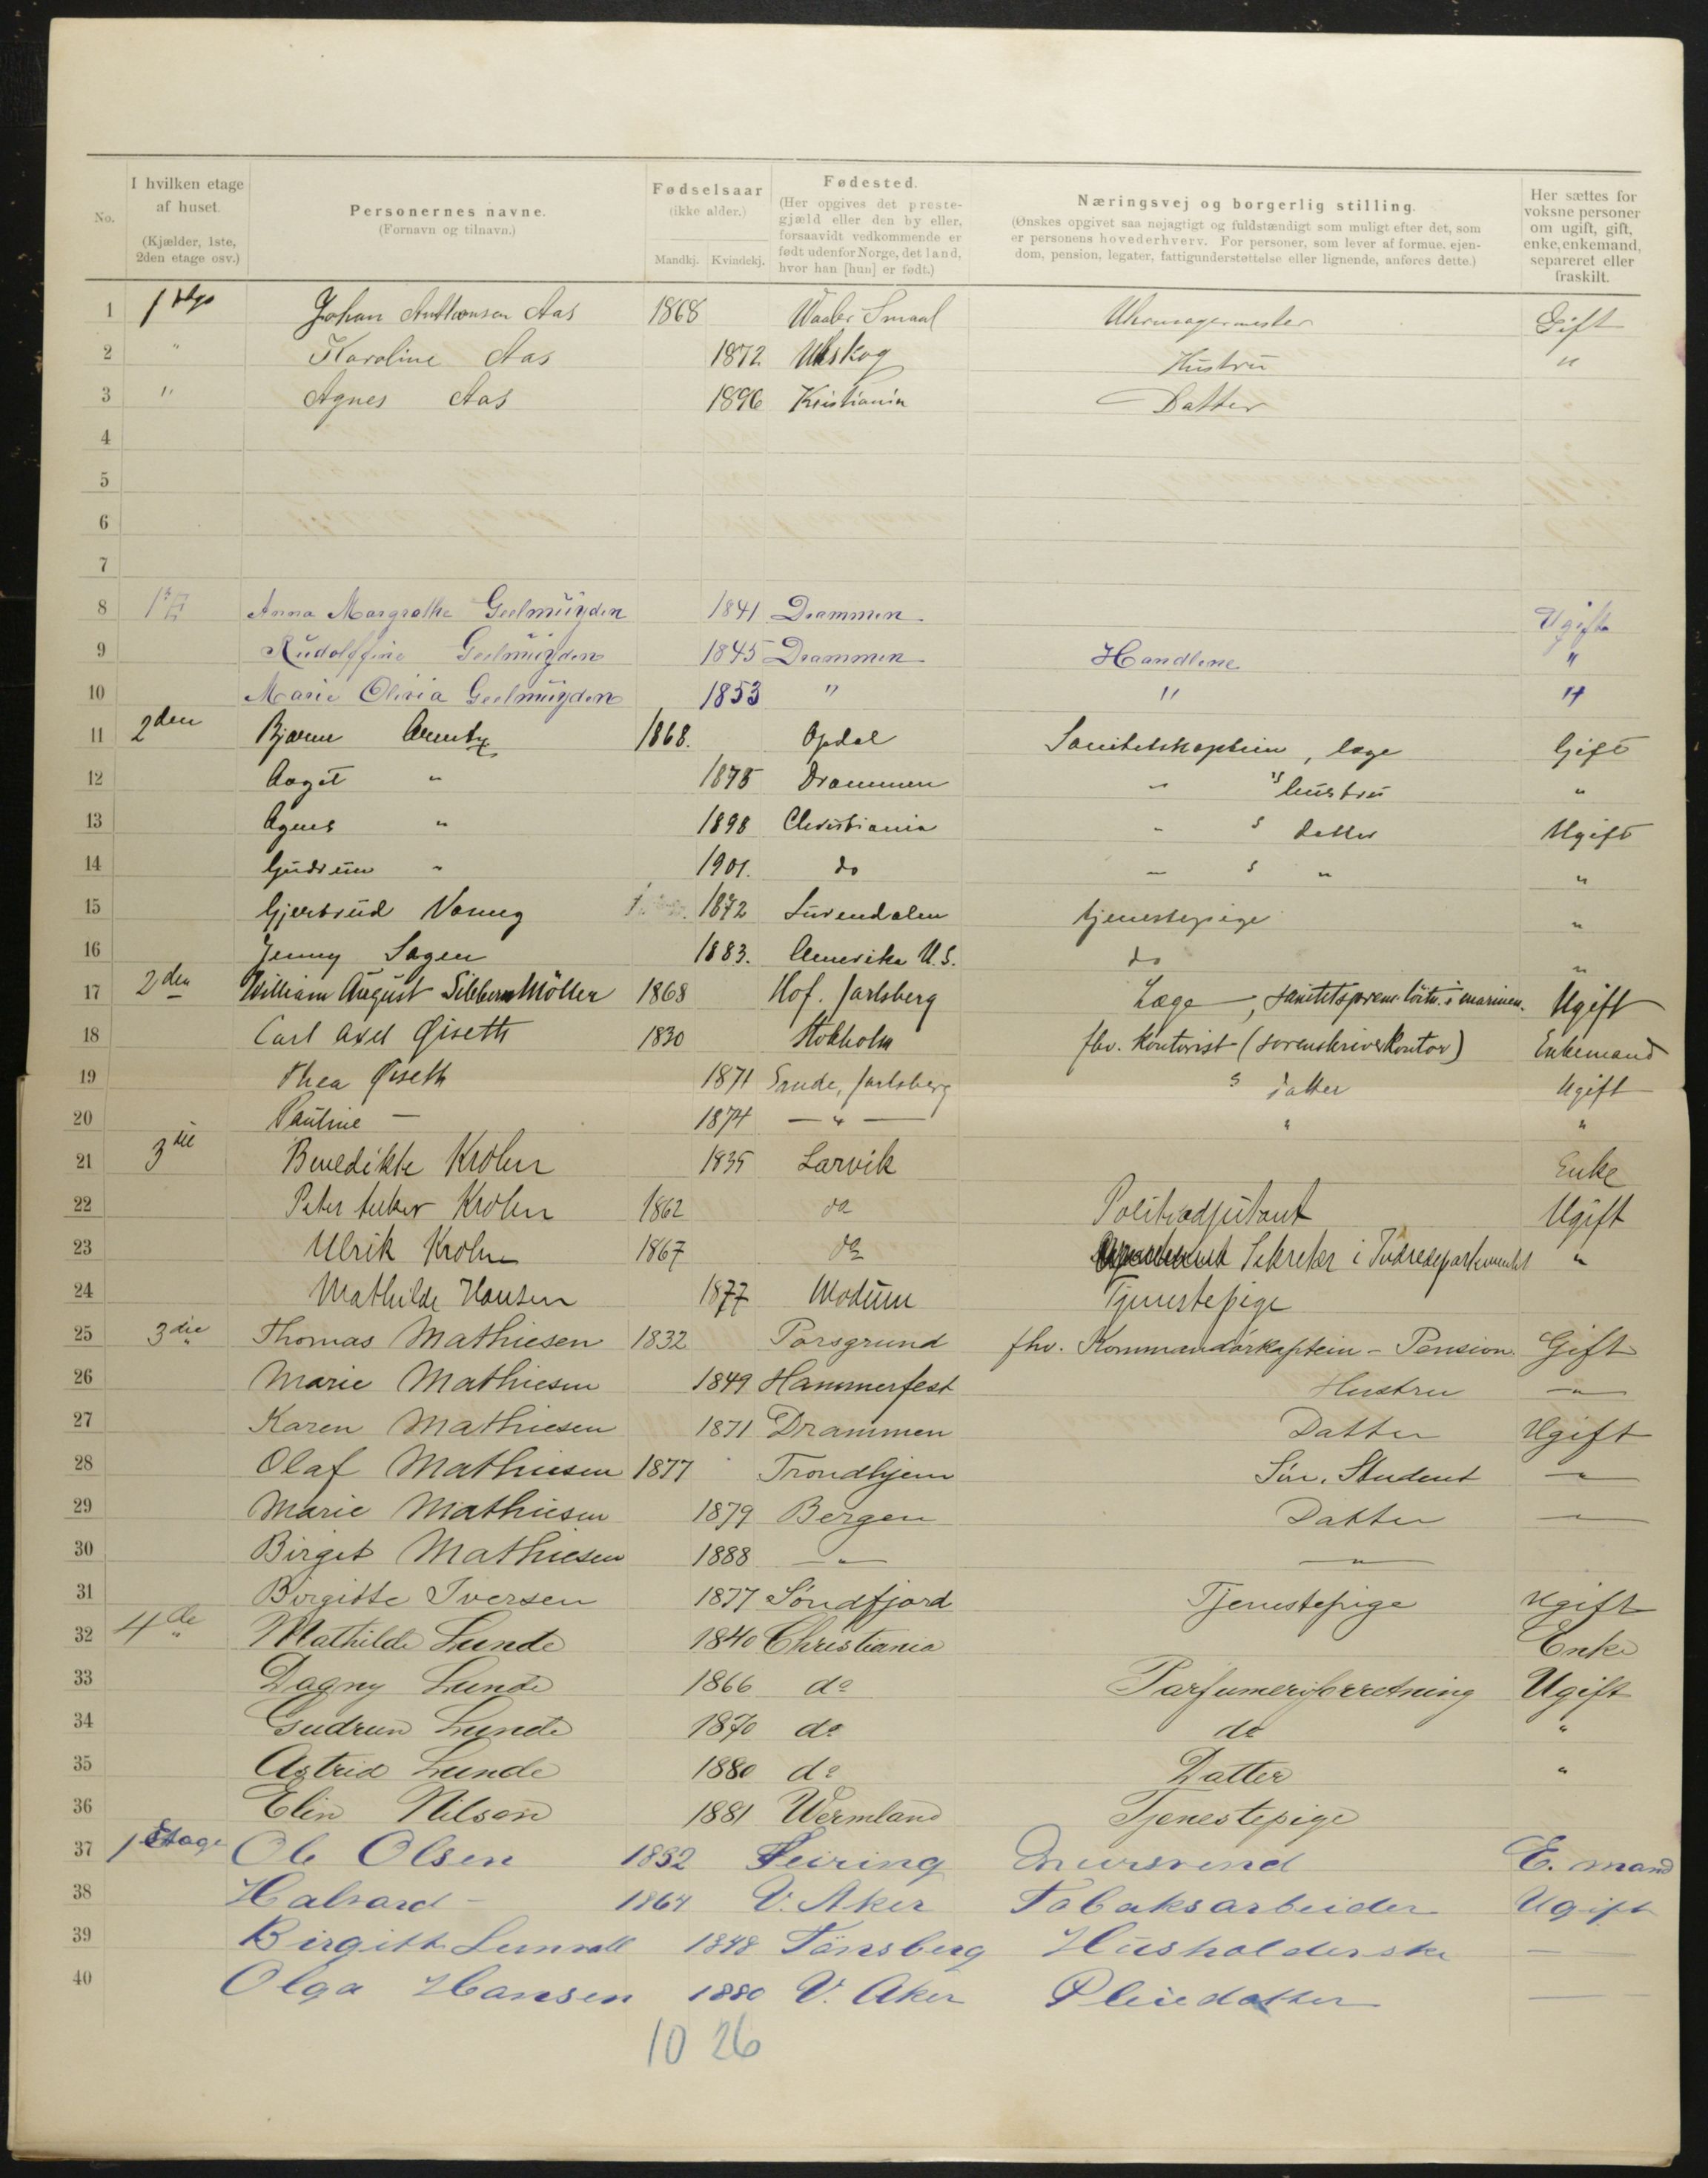 No.
I hvilken etage af huset. (Kjælder, 1ste, 2den etage osv.)
Personernes navne. (Fornavn og tilnavn.)
Fødselsaar (ikke alder.) Mandkj. Kvindekj.
Fødested. (Her opgives det prestegjæld eller den by eller, forsaavidt vedkommende er født udenfor Norge, det land, hvor han [hun] er født.)
Næringsvej og borgerlig stilling. (Ønskes opgivet saa nøjagtigt og fuldstændigt som muligt efter det, som er personens hovederhverv. For personer, som lever af formue, ejendom, pension, legater, fattigunderstøttelse eller lignende, anføres dette.)
Her sættes for voksne personer om ugift, gift, enke, enkemand, separeret eller fraskilt.
1 Johan Anthonsen Aas 1868 Waaler Smaal Uhrmagermester Gift
2 " Karoline Aas 1872 Urskog Hustru "
3 " Agnes Aas 1896 Kristiania Datter
4
5
6
7
8 1ste Anna Margrethe Geelmüyden 1841 Drammen Ugift
9 Rudolffine Geelmüyden 1845 Drammen Handlene "
10 Marie Olivia Geelmüyden 1853 " " "
11 2den Bjarne 1868. Opdal Sanitetskaptein, læge Gift
12 Aagot " 1875 Drammen " s hustru "
13 Agnes " 1898 Christiania " s datter Ugift
14 Gudrun " 1901. do " s " "
15 Gjertrud 1872 Surendalen tjenestepige "
16 Jenny Sagen 1883. Amerika U.S. do "
17 2den William August Sibbern Möller 1868 Hof. Jarlsberg Læge, sanitetspremløitn. i marinen. Ugift
18 Carl Axel Øiseth 1830 Stokholm fhv. Kontorist (sorenskriverkontor) Enkemand
19 Thea Øiseth 1871 Sande, Jarlsberg s datter Ugift
20 Pauline — 1874 — " — " "
21 3die Benedikte Krohn 1835 Larvik Enke
22 Peter Krohn 1862 do Politiadjutant Ugift
23 Ulrik Krohn 1867 do Sekretær i Indredepartementet "
24 Mathilde Hansen 1877 Modum Tjenestepige
25 3die Thomas Mathiesen 1832 Porsgrund fhv. Kommandørkaptein - Pension. Gift
26 Marie Mathiesen 1849 Hammerfest Hustru — " —
27 Karen Mathiesen 1871 Drammen Datter Ugift
28 Olaf Mathiesen 1877 Trondhjem Søn, Student — " —
29 Marie Mathiesen 1879 Bergen Datter — " —
30 Birget Mathiesen 1888 — " — — " —
31 Birgitte Iversen 1877 Søndfjord Tjenestepige Ugift
32 4de Mathilde Lunde 1840 Christiania Enke
33 Dagny Lunde 1866 do Parfumeriforretning Ugift
34 Gudrun Lunde 1870 do do "
35 Astrid Lunde 1880 do Datter "
36 Elin Nilson 1881 Wermland Tjenestepige
37 1 Etage Ole Olsen 1832 Feiring Mursvend E. mand
38 Halvard - 1864 V. Aker Tobaksarbeider Ugift
39 Birgitte 1848 Tønsberg Husholderske —
40 Olga Hansen 1880 V. Aker Pleiedatter —
10 26